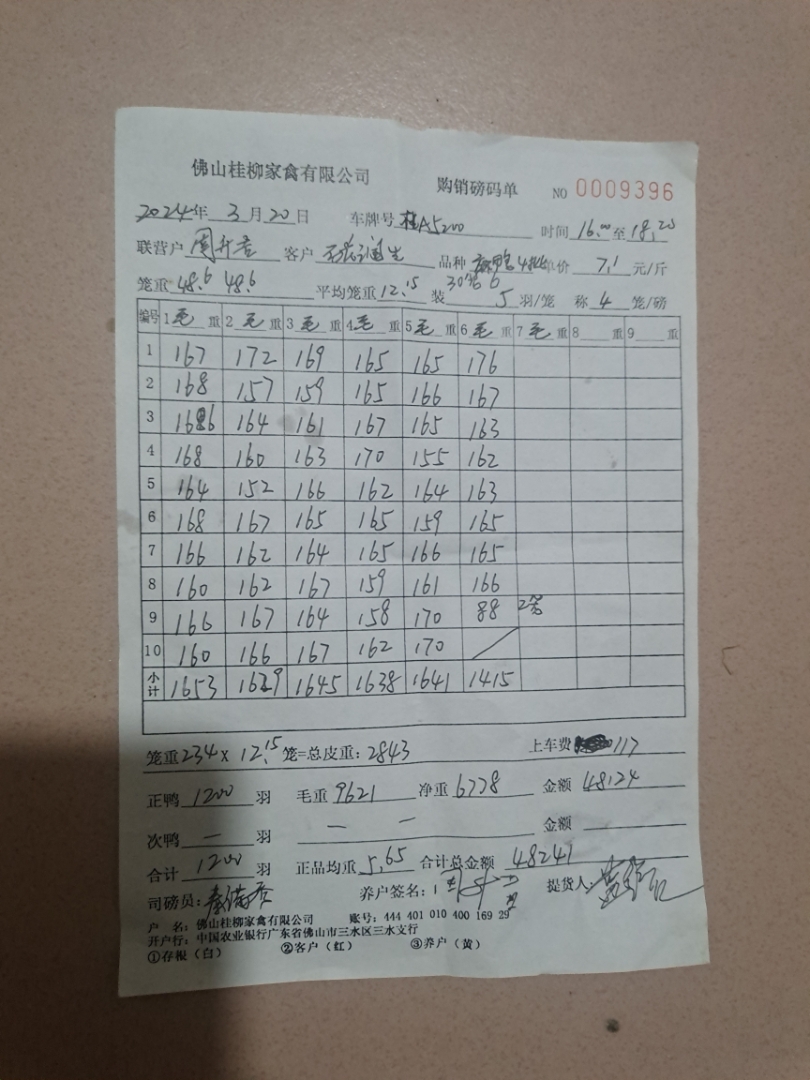 佛山桂柳家禽有限公司 购销磅码单 NO 0009396
2024年 3月20日 车牌号 桂A5200 时间 16.00至18.20
联营户 周 客户 品种 单价 7.1 元/斤
笼重 48.6 48.6 平均笼重 12.15 装 30笼6 5 羽/笼 称 4 笼/磅
编号 1毛重 2毛重 3毛重 4毛重 5毛重 6毛重 7毛重 8 重 9 重
1 167 172 169 165 165 176
2 168 157 159 165 166 167
3 166 164 161 167 165 163
4 168 160 163 170 155 162
5 164 152 166 162 164 163
6 168 167 165 165 159 165
7 166 162 164 165 166 165
8 160 162 167 159 161 166
9 166 167 164 158 170 88 2笼
10 160 166 167 162 170 /
小计 1653 1629 1645 1638 1641 1415
笼重 234 x 12.15 笼=总皮重: 2843 上车费 117
正鸭 1200 羽 毛重 9621 净重 6778 金额 48124
次鸭 — 羽 — — 金额
合计 1200 羽 正品均重 5.65 合计总金额 48241
司磅员: 养户签名: 提货人
户 名: 佛山桂柳家禽有限公司 账号: 444 401 010 400 169 29
开户行: 中国农业银行广东省佛山市三水区三水支行
①存根（白） ②客户（红） ③养户（黄）